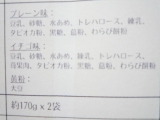 プレーン味：
豆乳、砂糖、水あめ、トレハロース、練乳、
タピオカ粉、黒糖、葛粉、わらび餅粉
イチゴ味：
豆乳、砂糖、水あめ、練乳、トレハロース、
苺果肉、タピオカ粉、黒糖、葛粉、わらび餅粉
黄粉：
大豆
約170g×2袋